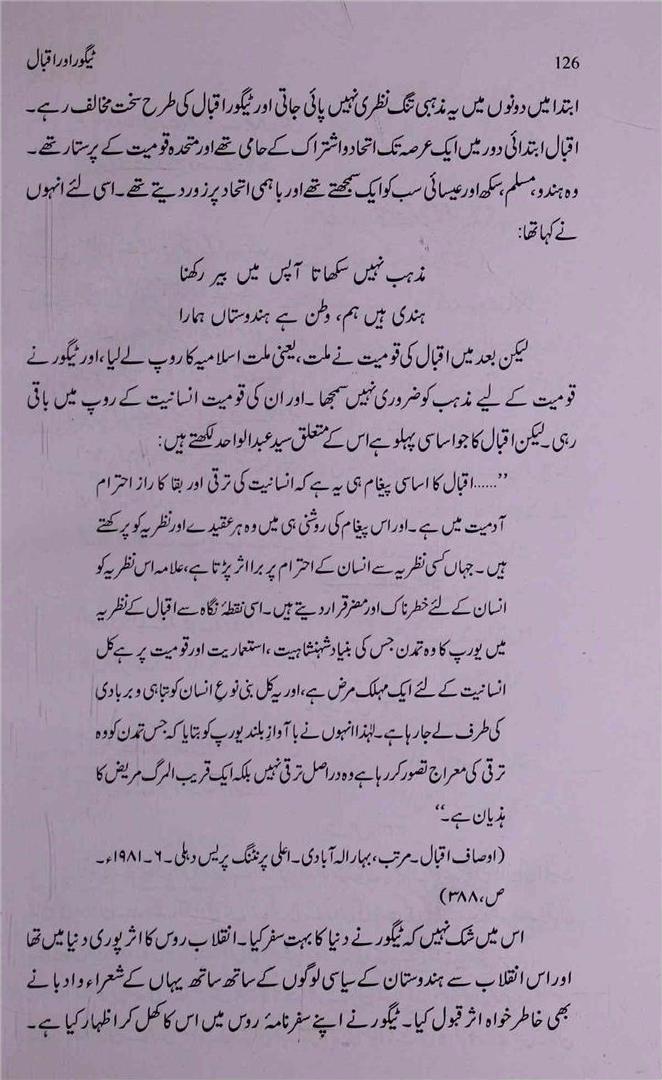 126
ٹیگور اور اقبال
ابتدا میں دونوں میں یہ مذہبی تنگ نظری نہیں پائی جاتی اور ٹیگور اقبال کی طرح سخت مخالف رہے۔
اقبال ابتدائی دور میں ایک عرصہ تک اتحاد و اشتراک کے حامی تھے اور متحدہ قومیت کے پرستار تھے۔
وہ ہندو، مسلم، سکھ اور عیسائی سب کو ایک سمجھتے تھے اور باہمی اتحاد پر زور دیتے تھے۔ اسی لئے انہوں
نے کہا تھا:
مذہب نہیں سکھاتا آپس میں بیر رکھنا
ہندی ہیں ہم، وطن ہے ہندوستاں ہمارا
لیکن بعد میں اقبال کی قومیت نے ملت، یعنی ملت اسلامیہ کا روپ لے لیا، اور ٹیگور نے
قومیت کے لیے مذہب کو ضروری نہیں سمجھا۔ اور ان کی قومیت انسانیت کے روپ میں باقی
رہی۔ لیکن اقبال کا جو اساسی پہلو ہے اس کے متعلق سید عبدالواحد لکھتے ہیں:
”......اقبال کا اساسی پیغام ہی یہ ہے کہ انسانیت کی ترقی اور بقا کا راز احترام
آدمیت میں ہے۔ اور اس پیغام کی روشنی ہی میں وہ ہر عقیدے اور نظریہ کو پرکھتے
ہیں۔ جہاں کسی نظریہ سے انسان کے احترام پر برا اثر پڑتا ہے، علامہ اس نظریہ کو
انسان کے لئے خطرناک اور مضر قرار دیتے ہیں۔ اسی نقطۂ نگاہ سے اقبال کے نظریہ
میں یورپ کا وہ تمدن جس کی بنیاد شہنشاہیت، استعماریت اور قومیت پر ہے کل
انسانیت کے لئے ایک مہلک مرض ہے، اور یہ کل بنی نوعِ انسان کو تباہی و بربادی
کی طرف لے جا رہا ہے۔ لہٰذا انہوں نے با آوازِ بلند یورپ کو بتایا کہ جس تمدن کو وہ
ترقی کی معراج تصور کر رہا ہے وہ دراصل ترقی نہیں بلکہ ایک قریب المرگ مریض کا
ہذیان ہے۔“
(اوصاف اقبال۔ مرتب، بہار الہ آبادی۔ اعلی پرنٹنگ پریس دہلی۔ ۶۔ ۱۹۸۱ء۔
ص، ۳۸۸)
اس میں شک نہیں کہ ٹیگور نے دنیا کا بہت سفر کیا۔ انقلاب روس کا اثر پوری دنیا میں تھا
اور اس انقلاب سے ہندوستان کے سیاسی لوگوں کے ساتھ ساتھ یہاں کے شعراء و ادبا نے
بھی خاطر خواہ اثر قبول کیا۔ ٹیگور نے اپنے سفر نامۂ روس میں اس کا کھل کر اظہار کیا ہے۔